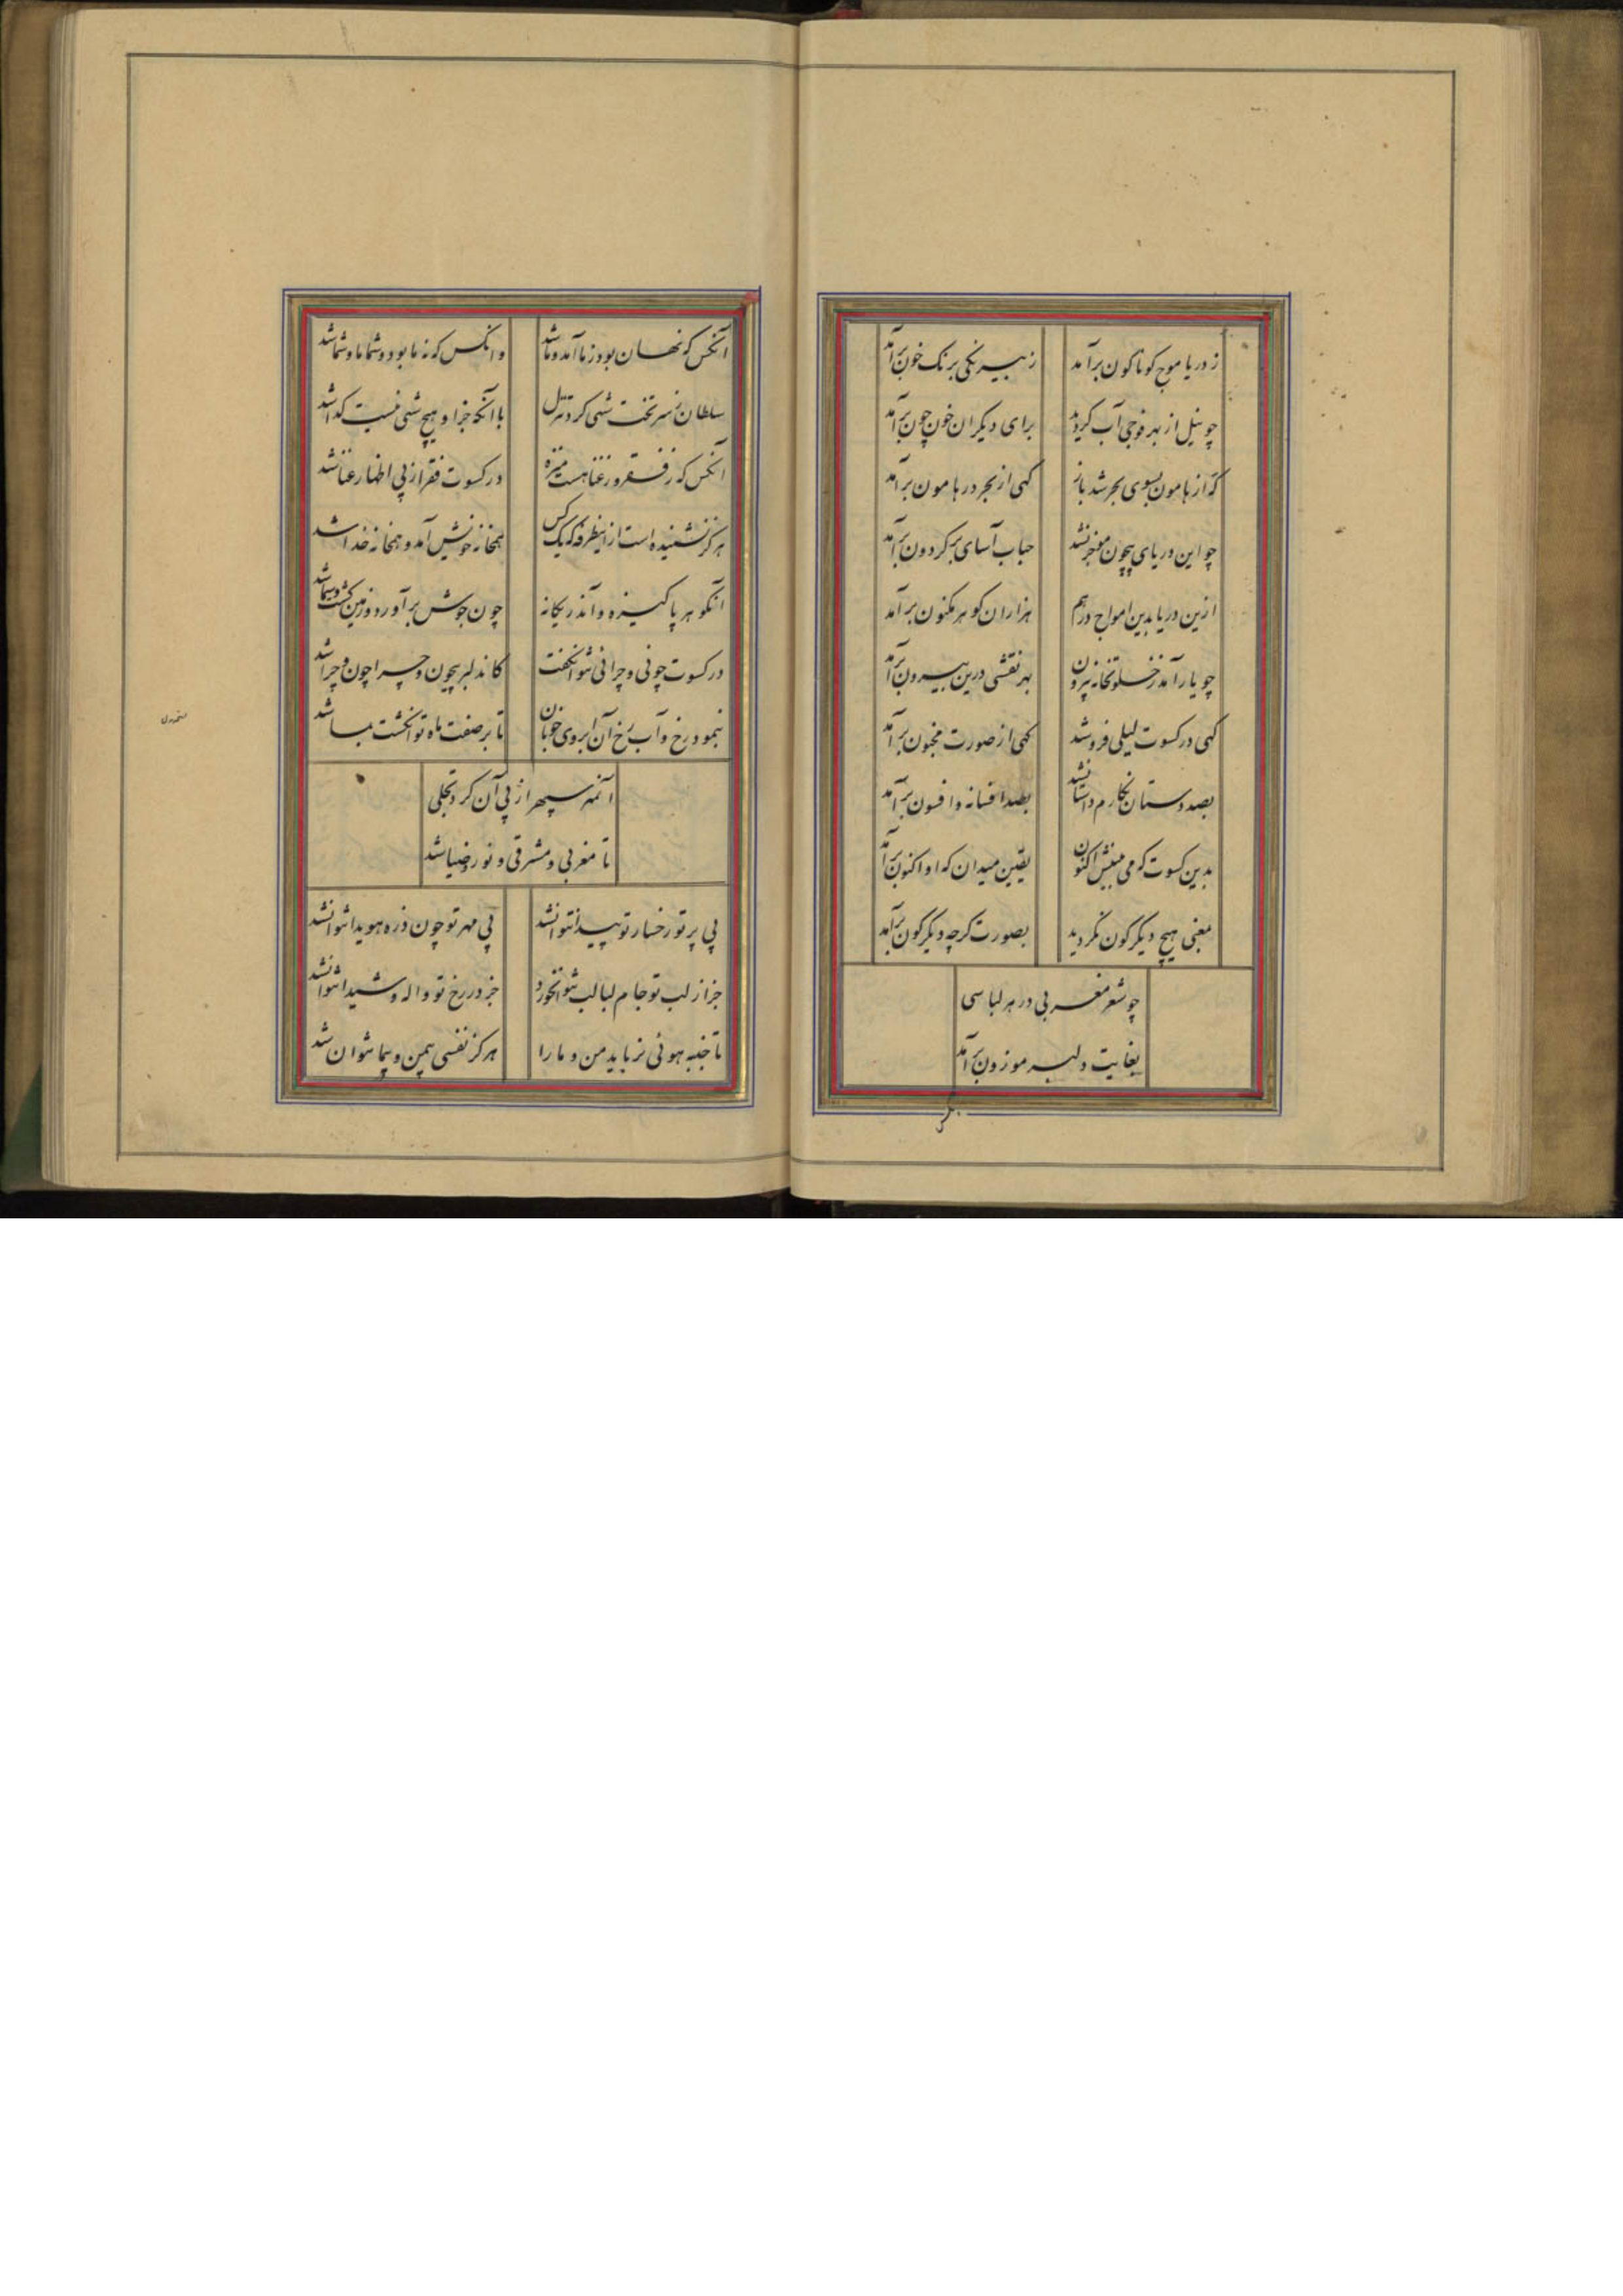 ز دریا موج کوناکون برآمد
ز بیرنکی برنک خون برآمد
چو نیل از بهر فوجی آب کردید
برای دیکران خون چون برآمد
که از هامون بسوی بحر شد باز
کهی از بحر در هامون برآمد
چو این دریای بیچون منفجر شد
حباب آسای بر کردون برآمد
ازین دریا بدین امواج درهم
هزاران کوهر مکنون برآمد
چو یار آمد ز خلوتخانه بیرون
بهر نقشی درین بیرون برآمد
کهی در کسوت لیلی فرو شد
کهی از صورت مجنون برآمد
بصد دستان نکارم داستان شد
بصد افسانه و افسون برآمد
بدین کسوت که می بینیش اکنون
یقین میدان که او اکنون برآمد
بمعنی هیچ دیکرکون نکردید
بصورت کرچه دیکرکون برآمد
چو شعر مغربی در هر لباسی
بغایت دلبر موزون برآمد
آنکس که نهان بود ز ما آمد و ما شد
وانکس که نه ما بود و شما ما و شما شد
سلطان ز سر تخت شهی کرد تنزل
با آنکه جز او هیچ شهی نیست کدا شد
آنکس که ز فقر و ز غنا هست منزه
در کسوت فقر از پی اظهار غنا شد
هرکز نشنیده است ازین طرفه که یک کس
هم خانه خویش آمد و هم خانه خدا شد
آن کوهر پاکیزه و آن در یکانه
چون جوش برآورد و زمین کشت و سما شد
در کسوت چونی و چرائی نتوان کفت
کان دلبر بیچون و چرا چون و چرا شد
بنمود رخ و آب رخ آن ابروی خوبان
تا بر صفت ماه نو انکشت نما شد
آئنه سپهر از پی آن کرد تجلی
تا مغربی و مشرقی و نور و ضیا شد
بی پرتو رخسار تو پیدا نتوان شد
بی مهر تو چون ذره هویدا نتوان شد
جز از لب تو جام لبالب نتوان خورد
جز در رخ تو واله و شیدا نتوان شد
تا جذبه هوئی نرباید من و ما را
هرکز نفسی بیمن و بیما نتوان شد